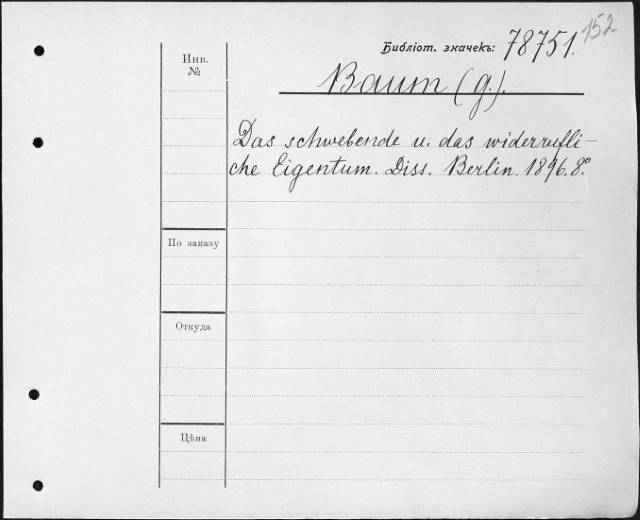 152
Библіот. значекъ: 78751.
Инв.
№
Baum (G.).
Das schwebende u. das widerrufli-
che Eigentum. Diss. Berlin. 1896. 8°.
По заказу
Откуда
Цѣна